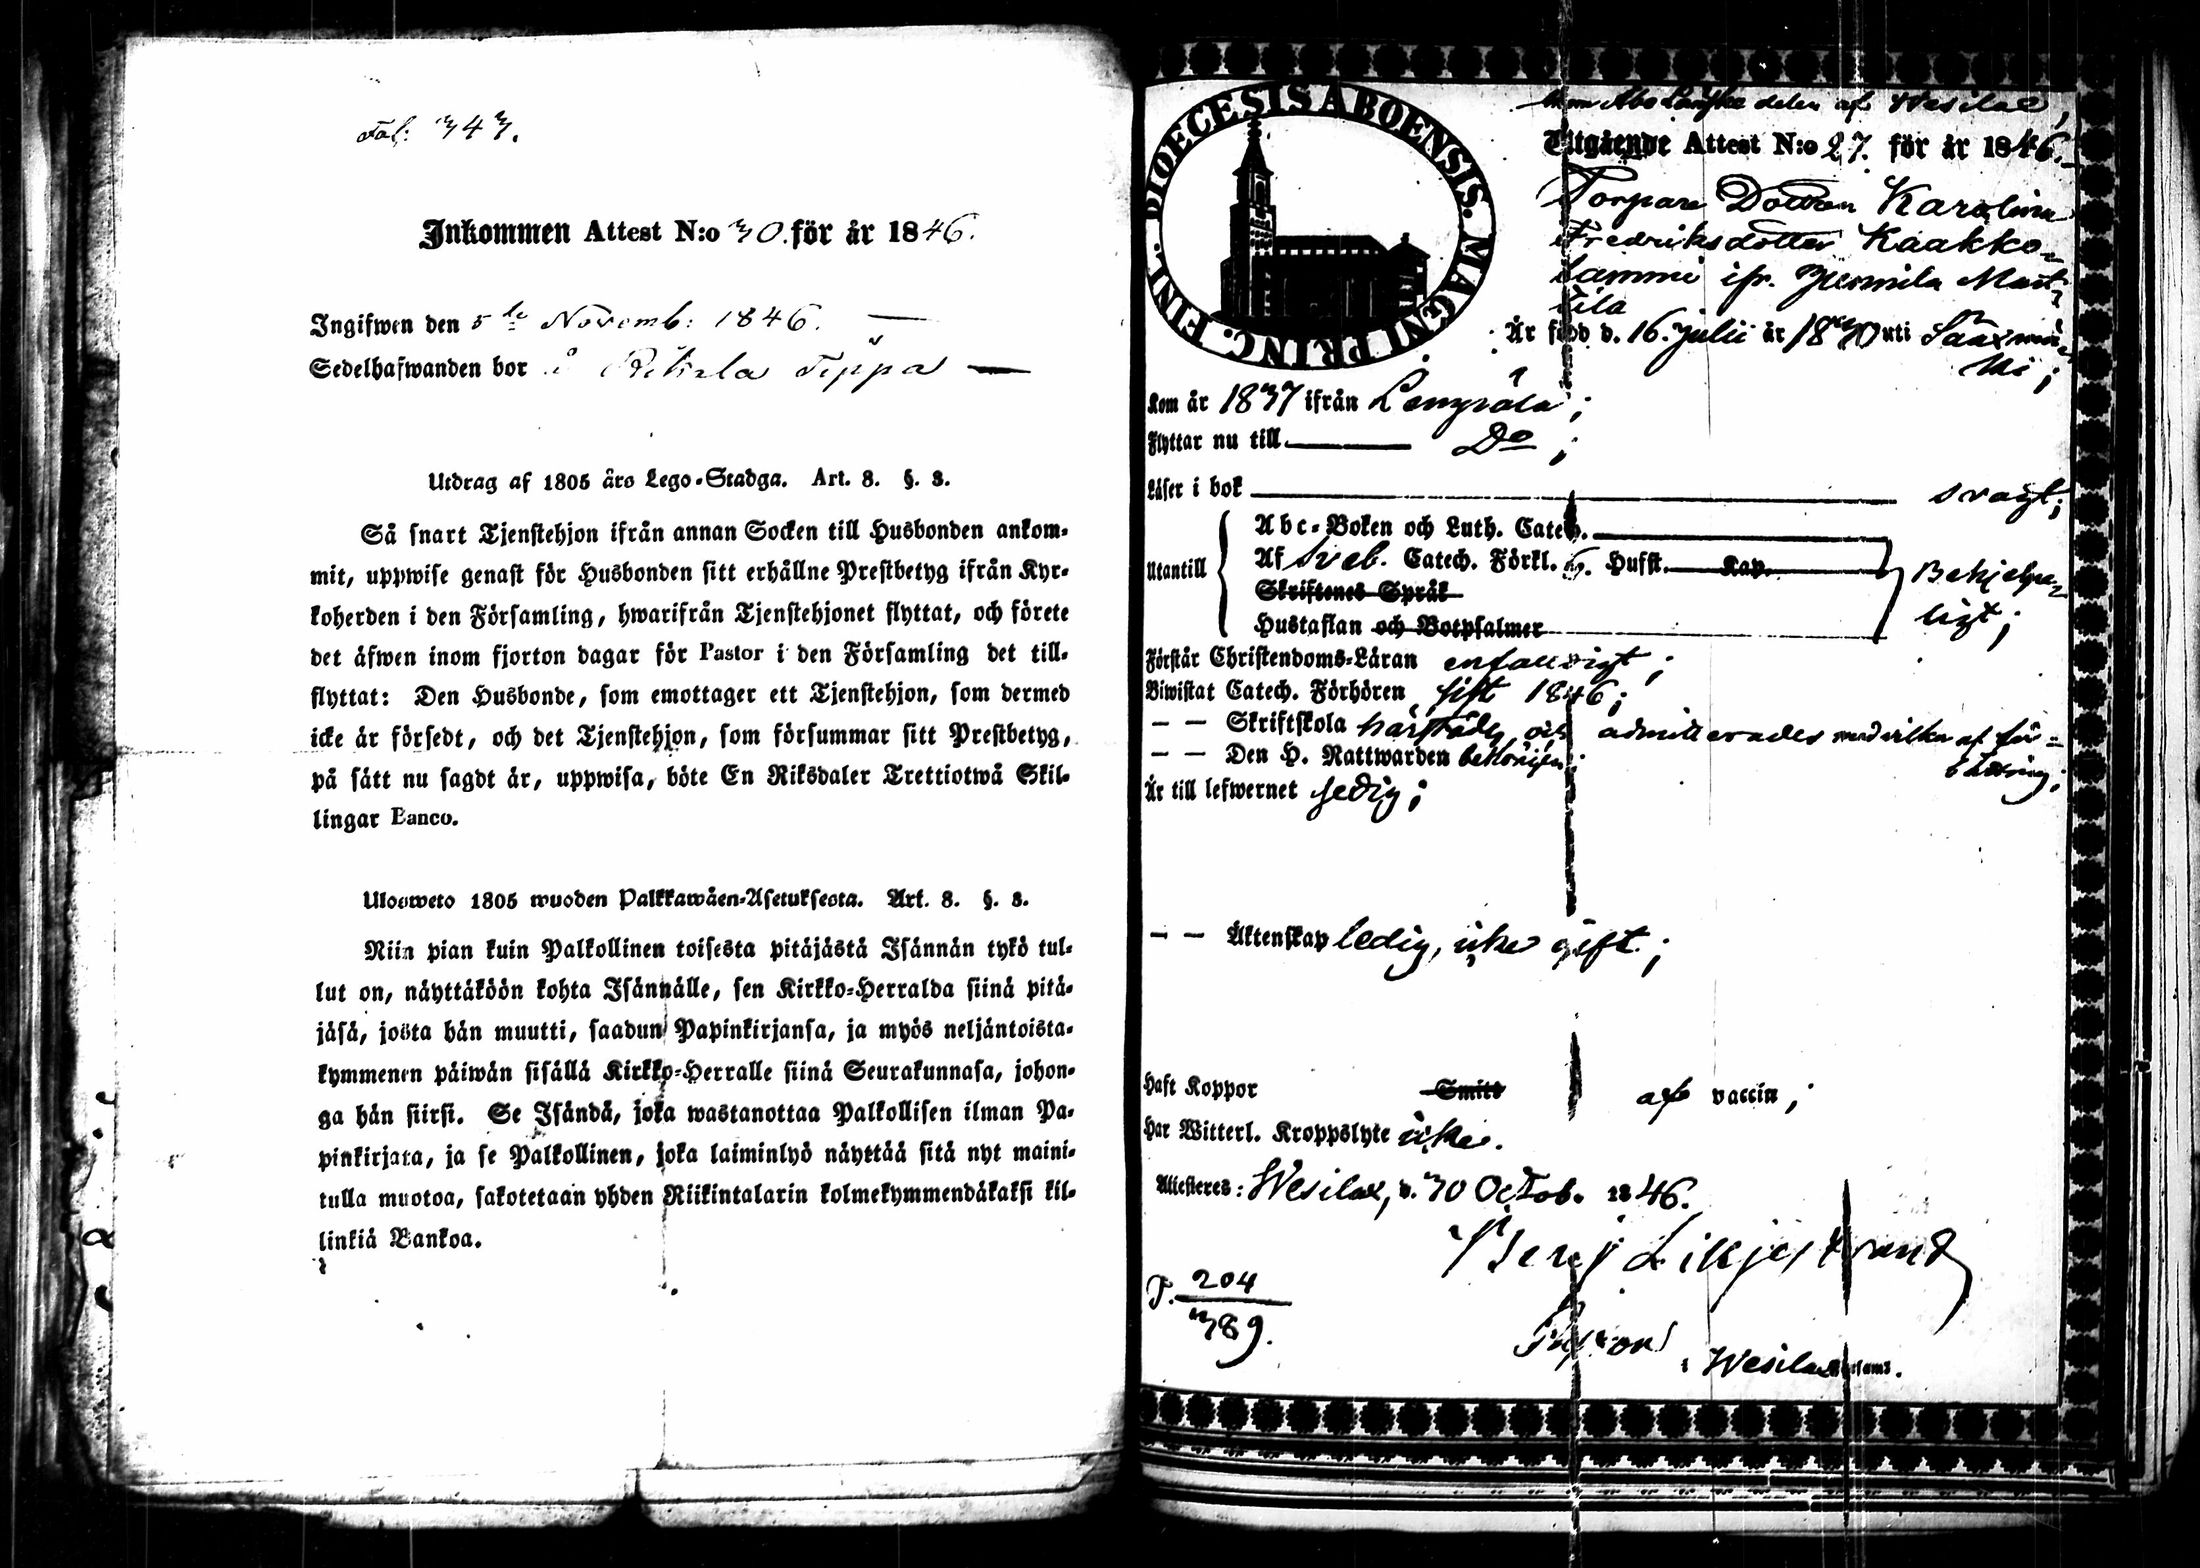 Fol: 343.
Inkommen Attest N:o 30. för år 1846.
Ingifwen den 5te Novemb: 1846.
Sedelhafwanden bor å Rikala Teppa
Utdrag af 1805 års Lego-Stadga. Art. 8. §. 3.
Så snart Tjenstehjon ifrån annan Socken till Husbonden ankom-
mit, uppwise genast för Husbonden sitt erhållne Prestbetyg ifrån Kyr-
koherden i den Församling, hwarifrån Tjenstehjonet flyttat, och förete
det äfwen inom fjorton dagar för Pastor i den Församling det till-
flyttat: Den Husbonde, som emottager ett Tjenstehjon, som dermed
icke är försedt, och det Tjenstehjon, som försummar sitt Prestbetyg,
på sätt nu sagdt är, uppwisa, böte En Riksdaler Trettiotwå Skil-
lingar Banco.
Ulosweto 1805 wuoden Palkkawäen-Asetuksesta. Art. 8. §. 3.
Niin pian kuin Palkollinen toisesta pitäjästä Isännän tykö tul-
lut on, näyttäköön kohta Isännälle, sen Kirkko-Herralda siinä pitä-
jäsä, josta hän muutti, saadun Papinkirjansa, ja myös neljäntoista-
kymmenen päiwän sisällä Kirkko-Herralle siinä Seurakunnasa, johon-
ga hän siirsi. Se Isändä, joka wastanottaa Palkollisen ilman Pa-
pinkirjata, ja se Palkollinen, joka laiminlyö näyttää sitä nyt maini-
tulla muotoa, sakotetaan yhden Riikintalarin kolmekymmendäkaksi kil-
linkiä Bankoa.
DIOECESIS ABOENSIS. MAGNI PRINC. FINL.
Åbo Länske delen af Wesilax,
Utgående Attest N:o 27. för år 1846.
Torpare Dottren Karolina
Fredriksdotter Kaakko-
lammi ifr. Jermila Mart-
tila
Är född d. 16. Julii år 1830 uti Sääxmä-
ki;
Kom år 1837 ifrån Lempälä;
Flyttar nu till Do;
Läser i bok svagt;
Utantill
Abc-Boken och Luth. Catech.
Af Sveb. Catech. Förkl. 6. Hufst. Kap. Behjelpe-
Skriftenes Språk ligt;
Hustaflan och Botpsalmer
Förstår Christendoms-Läran enfaldigt;
Biwistat Catech. Förhören sist 1846;
— — Skriftskola härstädes och admitterades med vilkor af för-
— — Den H. Nattwarden behörigen; bättring;
Är till lefwernet sedig;
— — Äktenskap ledig, icke gift;
Haft Koppor Smitt af vaccin;
Har Witterl. Kroppslyte icke.
Attesteres: Wesilax, d. 30 Octob. 1846.
Benj Liljestrand
P. 204
389.
Pastor
i Wesilax Förlams.